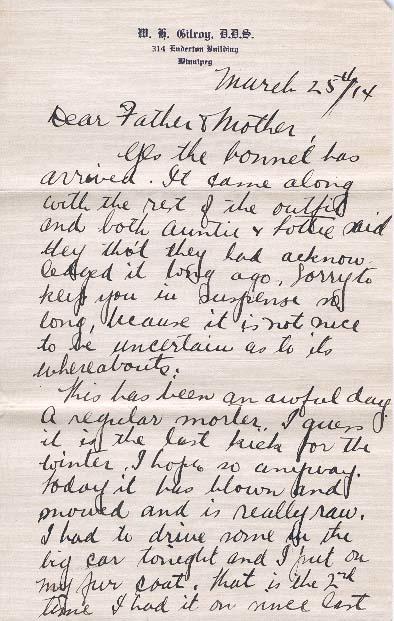 W. H. Gilroy, D.D.S.
314 Enderton Building
Winnipeg
March 25th/14
Dear Father & Mother,
Yes the bonnet has
arrived. It came along
with the rest of the outfit
and both Auntie & Lottie said
they tho't they had acknow
ledged it long ago. Sorry to
keep you in suspense so
long, because it is not nice
to be uncertain as to its
whereabouts.
This has been an awful day
A regular  I guess
it is the last kick for the
winter. I hope so anyway.
Today it has blown and
snowed and is really raw.
I had to drive some in the
big car tonight and I put on
my fur coat. That is the 2nd
time I had it on since last